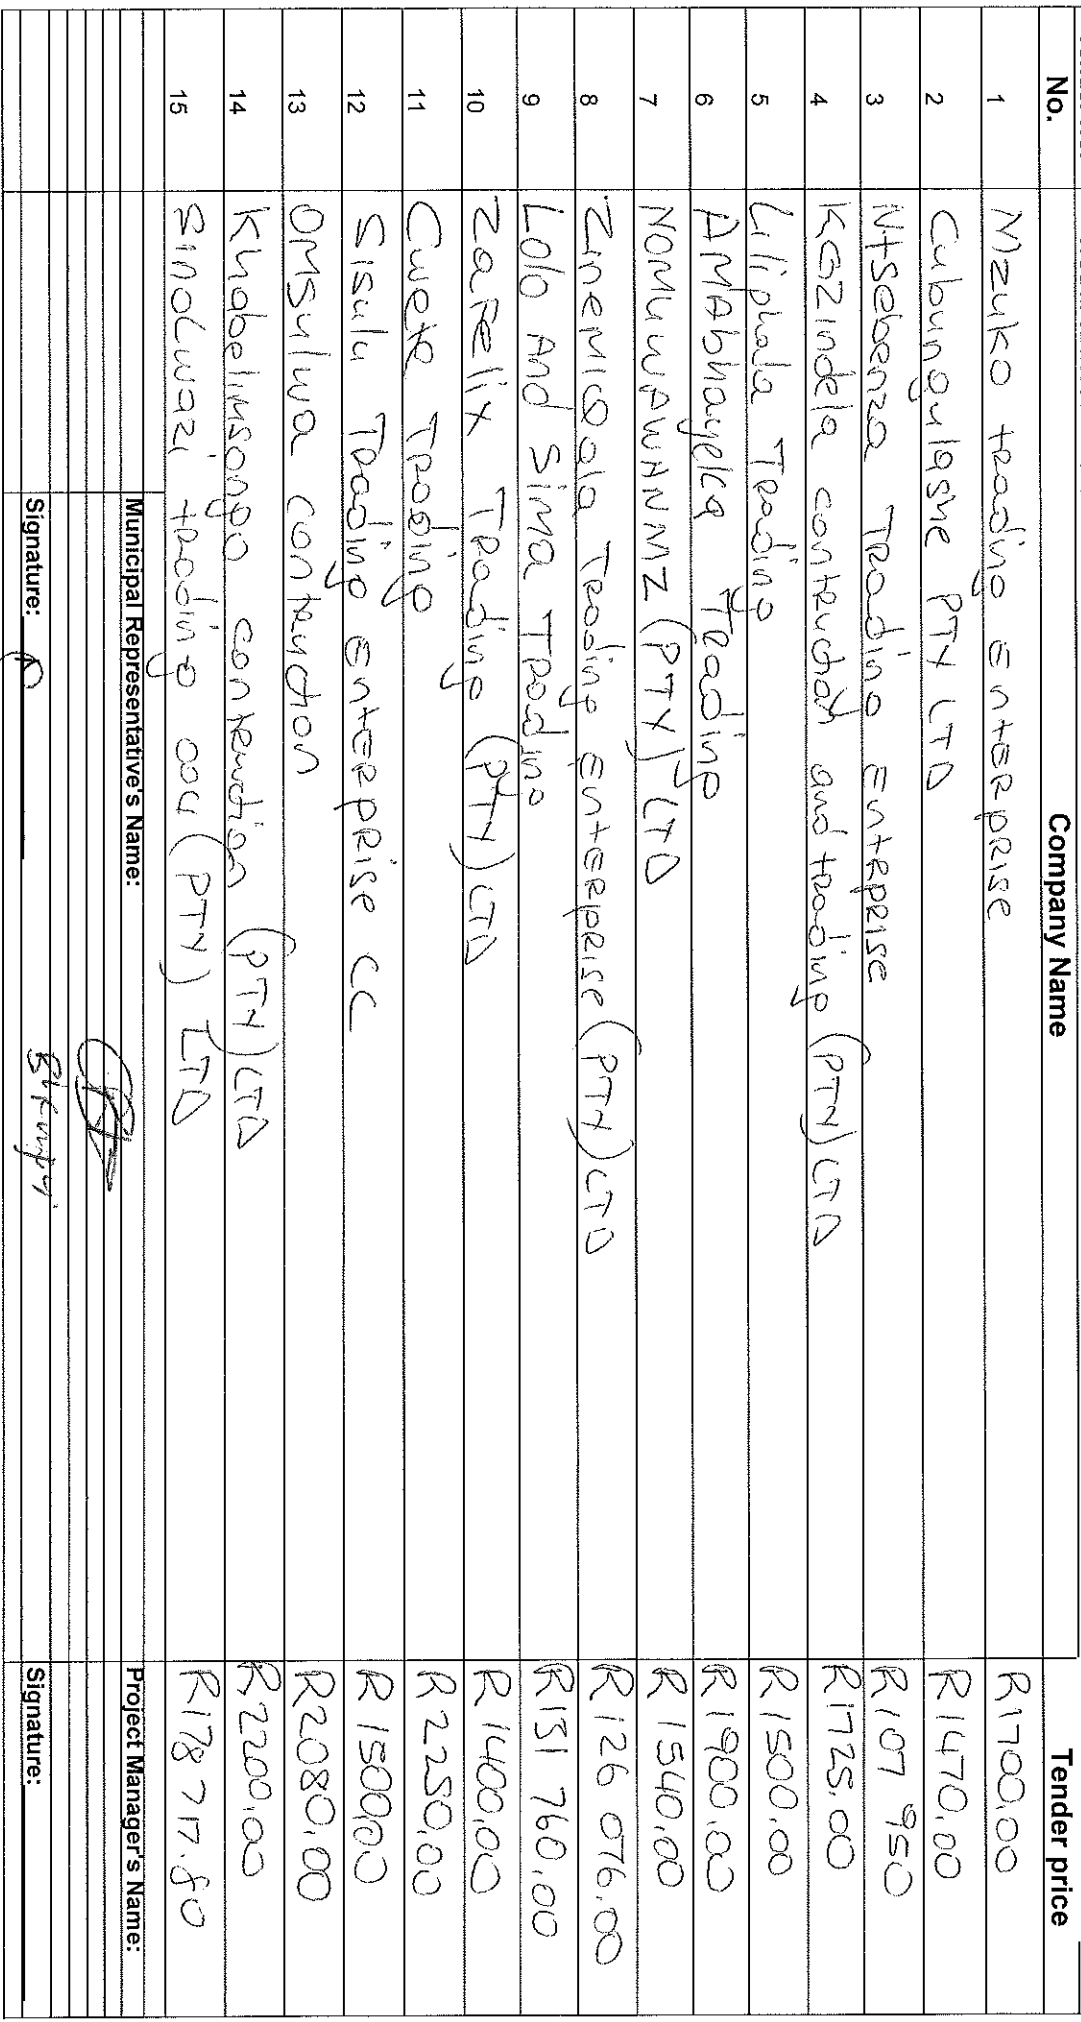 No. Company Name Tender price
1 Mzuko trading Enterprise R1700.00
2 Cubungulashe PTY LTD R1470.00
3 Ntsebenza Trading Enterprise R107 950
4 KGZindela contruction and trading (PTY) LTD R1725.00
5 Liliphala Trading R1500.00
6 AMAbhayelca Trading R1900.00
7 (PTY) LTD R1540.00
8 ZineMIQola Trading Enterprise (PTY) LTD R126 076.00
9 Lolo And Sima Trading R151 760.00
10 Zafelix Trading (PTY) LTD R1400.00
11 Cwete Trading R2250.00
12 Sisulu Trading Enterprise CC R1500.00
13 OMSulwa contruction R2080.00
14 Khabelimsongo contruction (PTY) LTD R2200.00
15 Sinolwazi trading (PTY) LTD R178 717.80
Municipal Representative's Name: Project Manager's Name:
Signature: Signature: